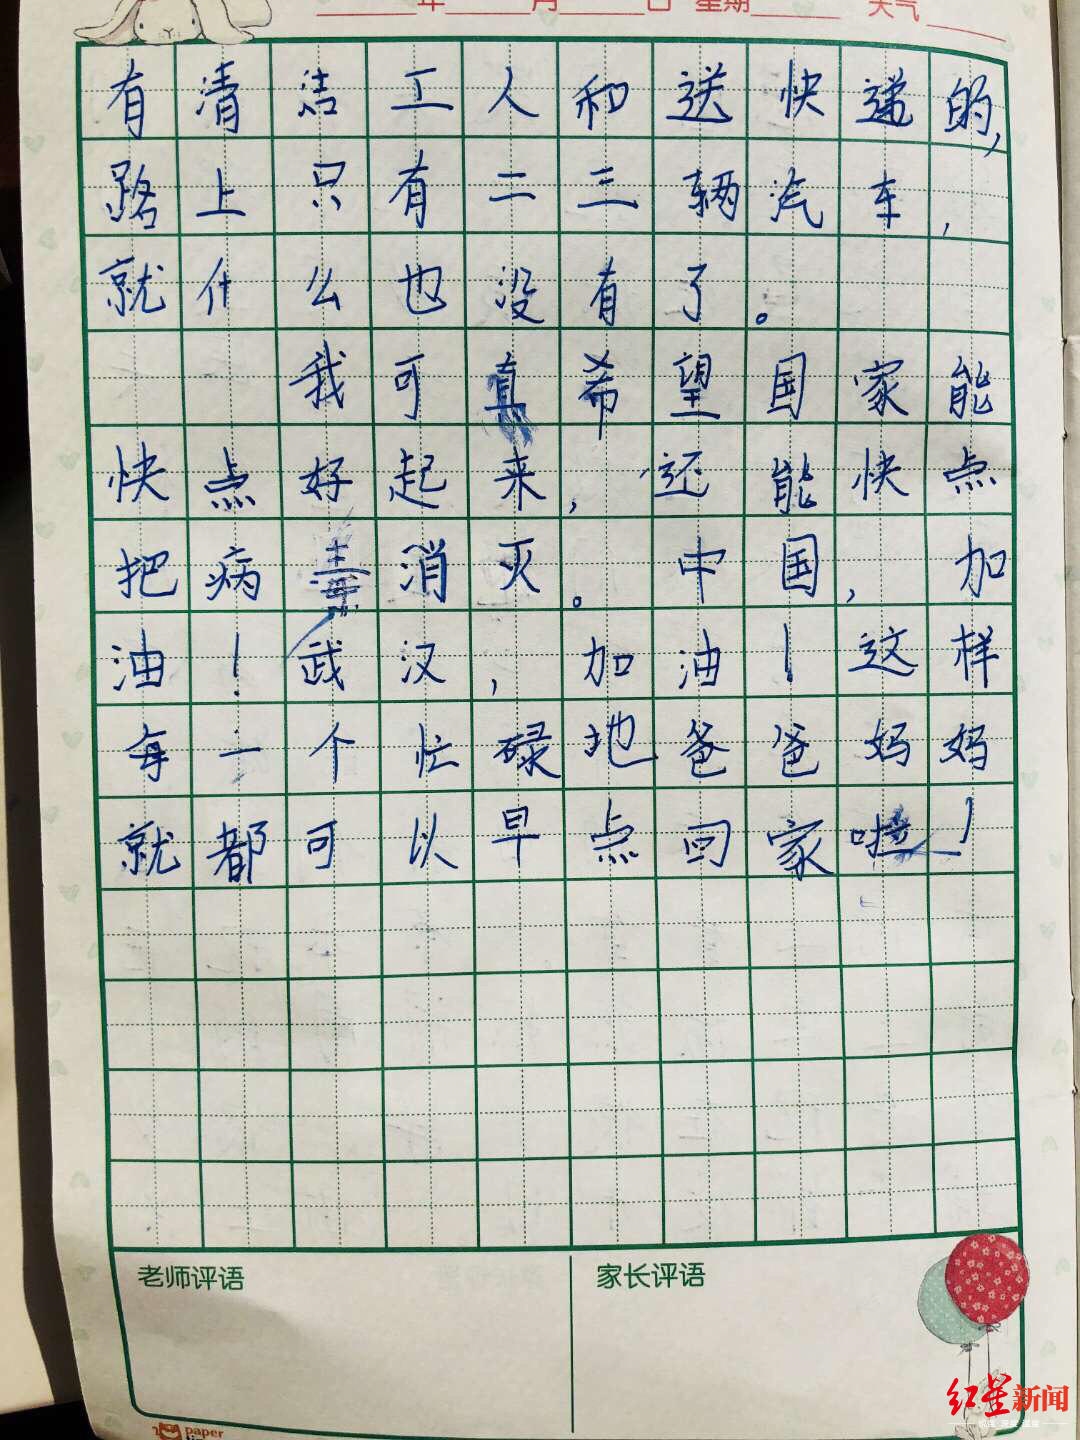 年 月 日 星期 天气
有清洁工人和送快递的,
路上只有二三辆汽车,
就什么也没有了。
我可真希望国家能
快点好起来,还能快点
把病毒消灭。中国,加
油!武汉,加油!这样
每一个忙碌地爸爸妈妈
就都可以早点回家啦!
老师评语 家长评语
红星新闻
paper